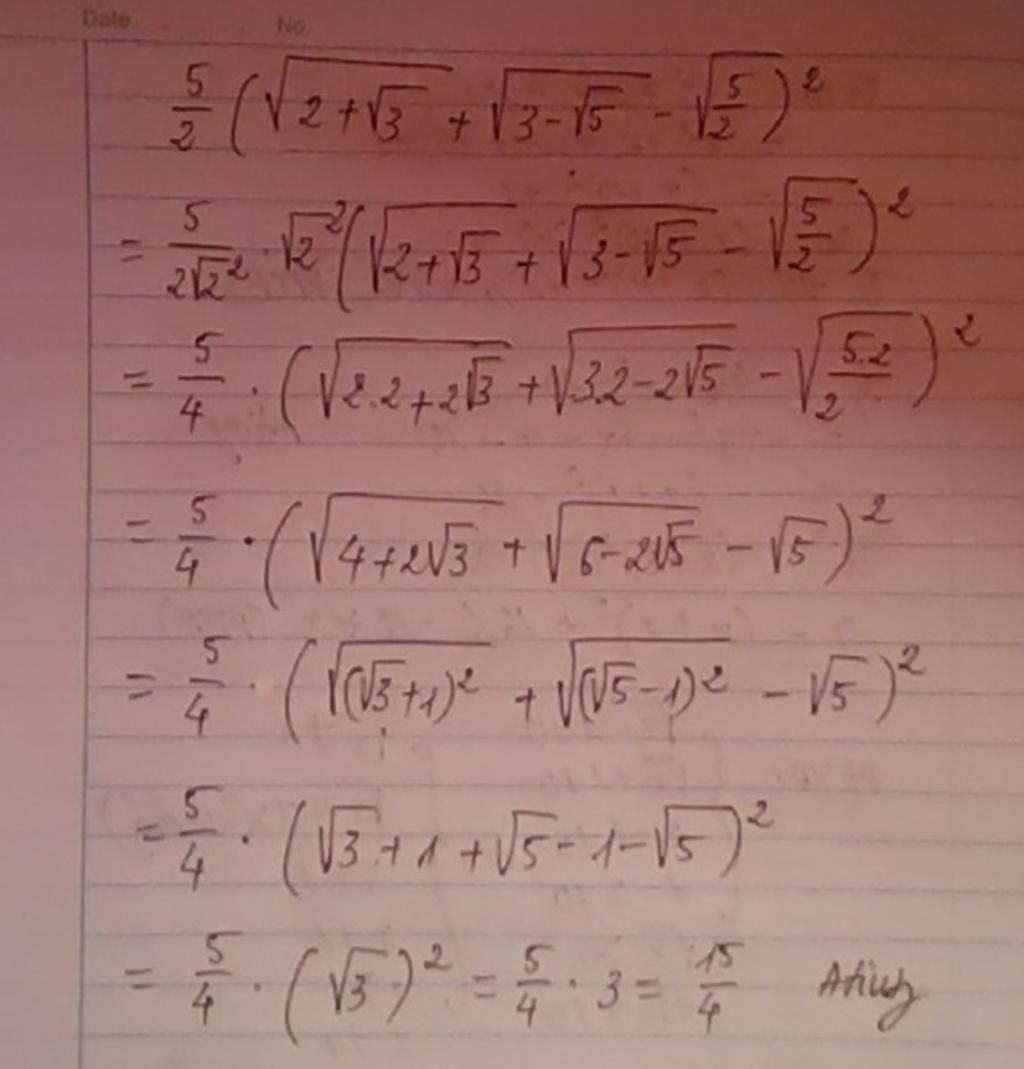 Date No.
5/2 (√(2+√3) + √(3-√5) - √(5/2))²
= 5/(2√2²) · √2² (√(2+√3) + √(3-√5) - √(5/2))²
= 5/4 · (√(2.2+2√3) + √(3.2-2√5) - √(5.2/2))²
= 5/4 · (√(4+2√3) + √(6-2√5) - √5)²
= 5/4 · (√((√3+1)²) + √((√5-1)²) - √5)²
= 5/4 · (√3+1+√5-1-√5)²
= 5/4 · (√3)² = 5/4 · 3 = 15/4